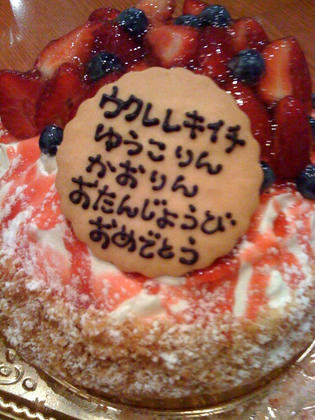 ウクレレキイチ
ゆうこりん
かおりん
おたんじょうび
おめでとう